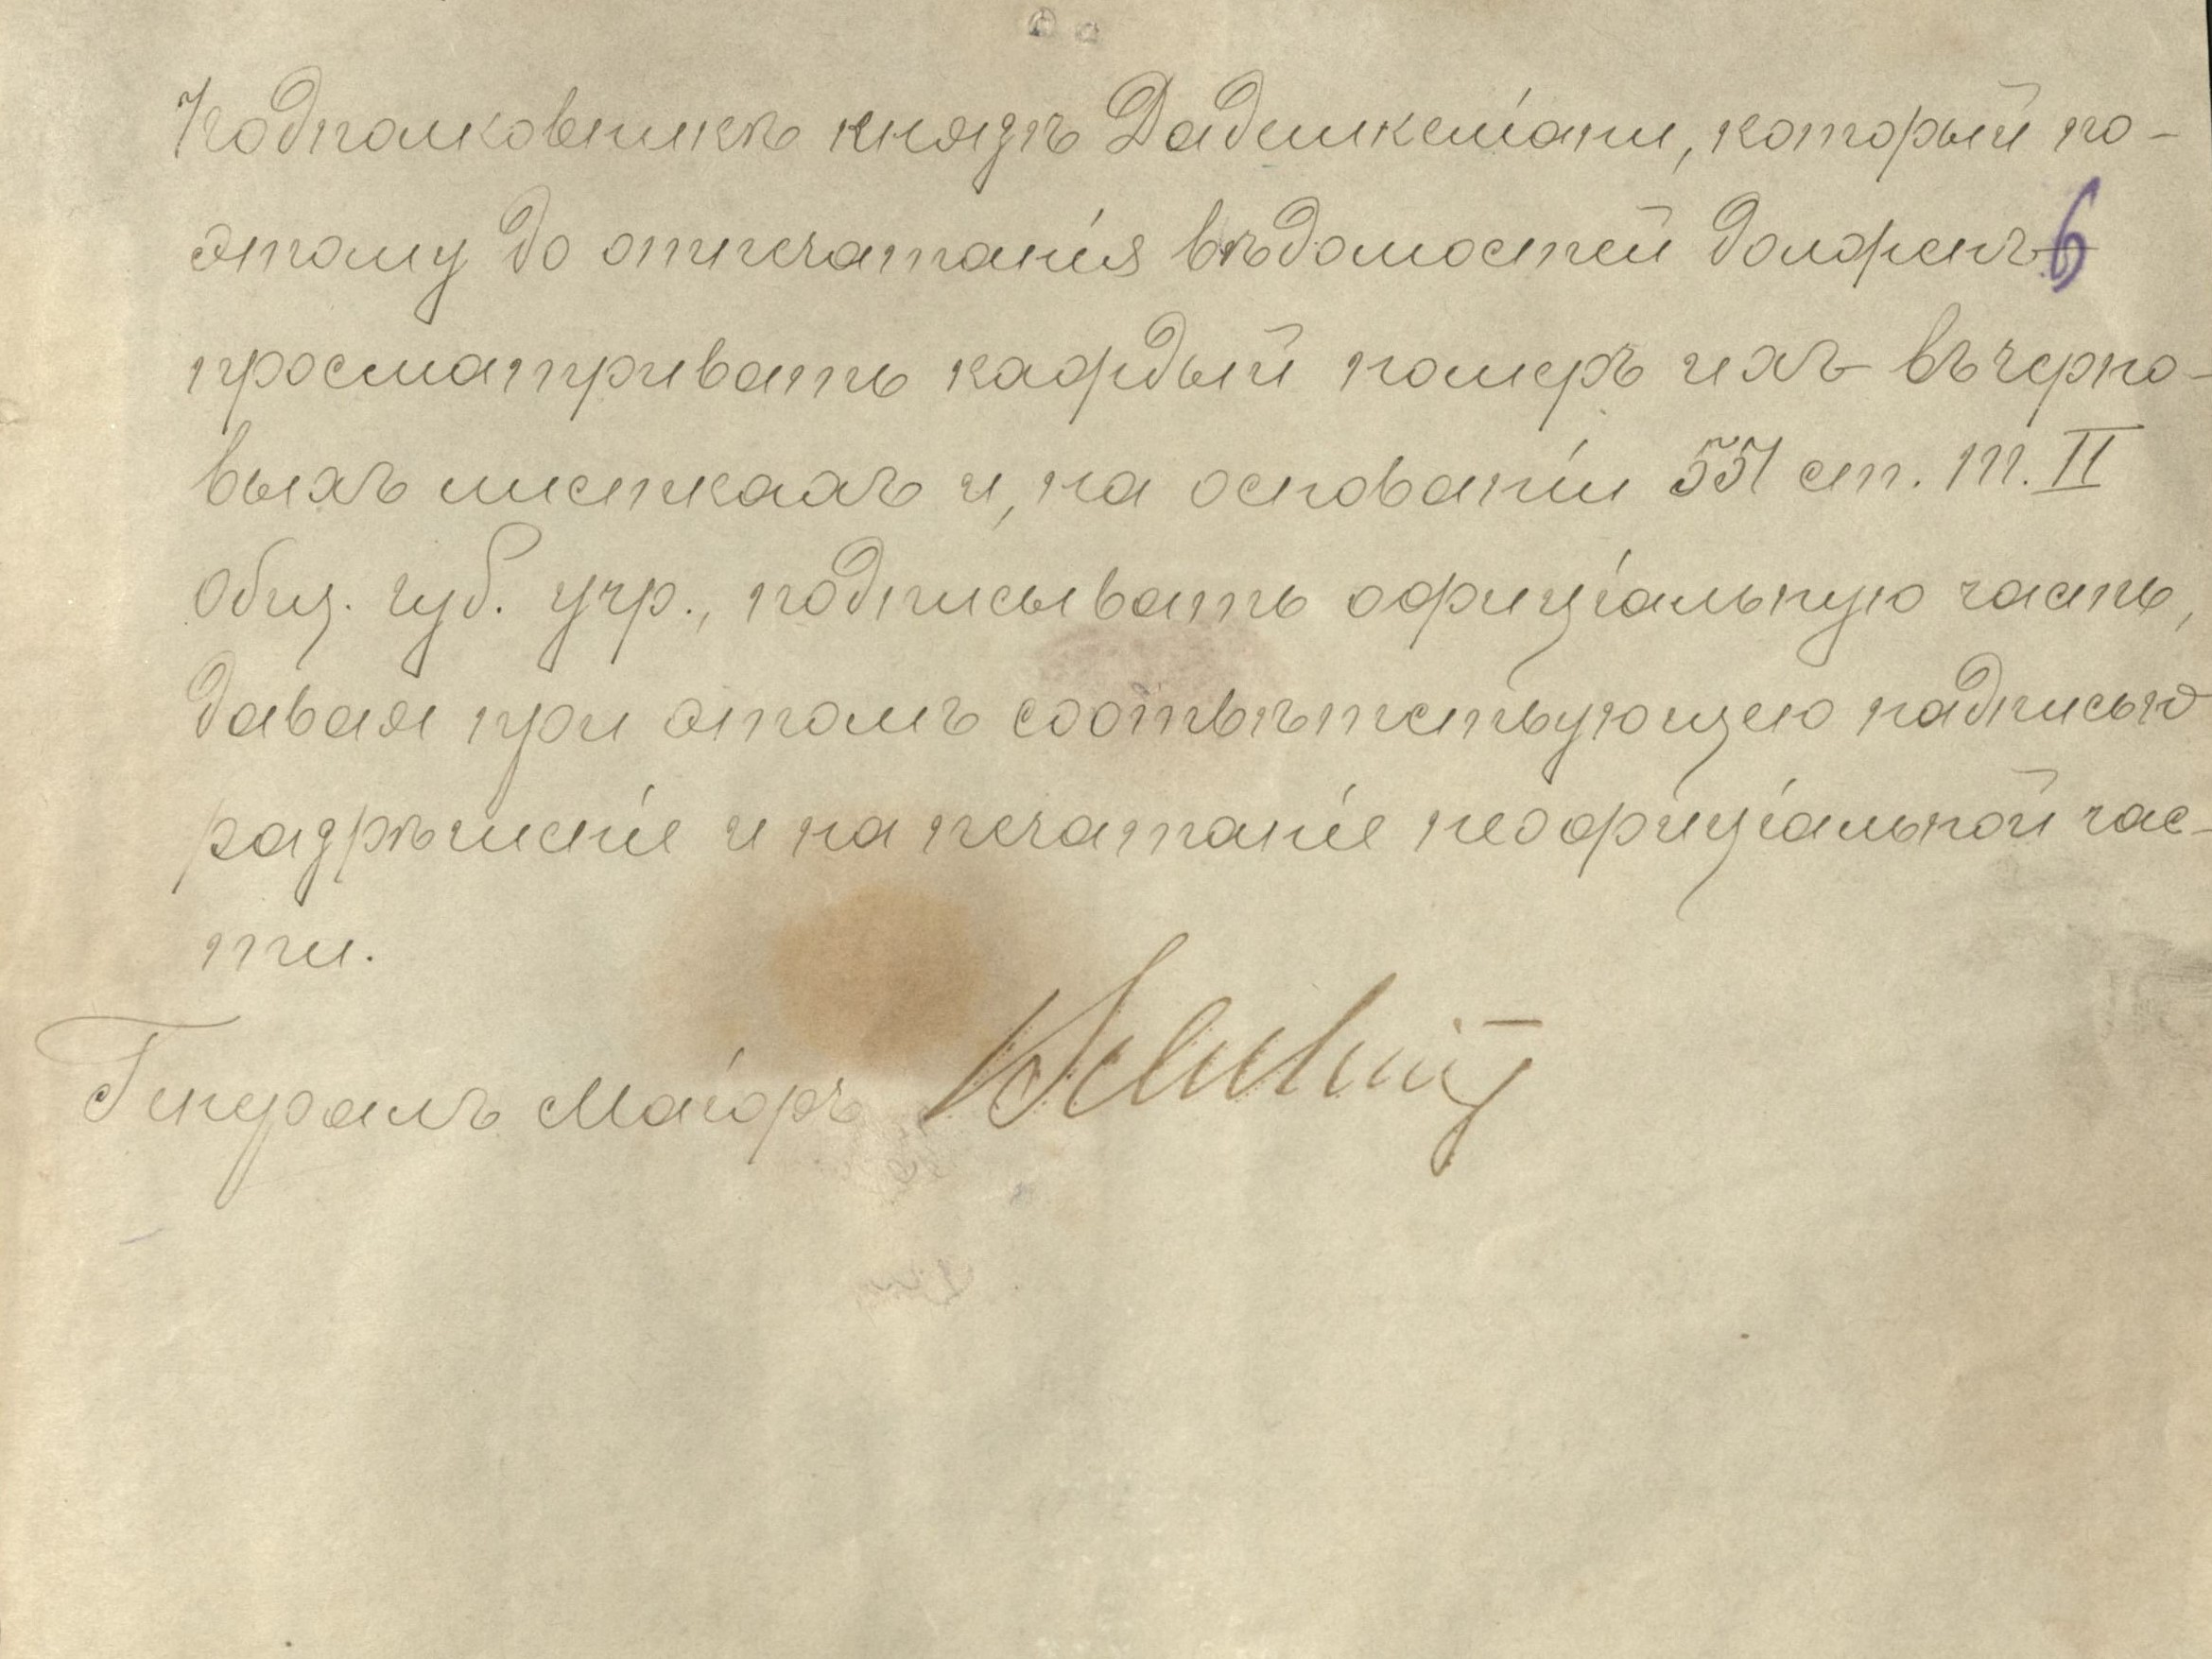 Подполковникъ князь Дадишкеліани, который по-
этому до отпечатанія вѣдомостей долженъ
просматривать каждый номеръ ихъ въ черно-
выхъ листкахъ и, на основаніи 551 ст. т. II
Общ. губ. учр., подписывать офиціальную часть,
давая при этомъ соотвѣтствующею надписью
разрѣшеніе и на печатаніе неофиціальной час-
ти.
Генералъ Маіоръ